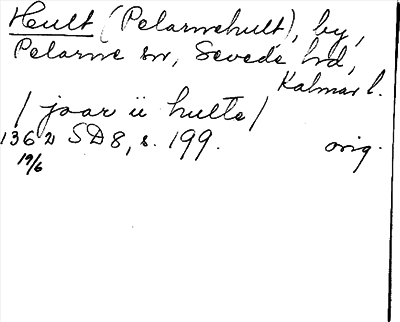 Hult (Pelarnehult), by,
Pelarne sn, Sevede hd,
Kalmar l.
/ joar ii hulte /
1362 SD8, s. 199. orig.
19/6